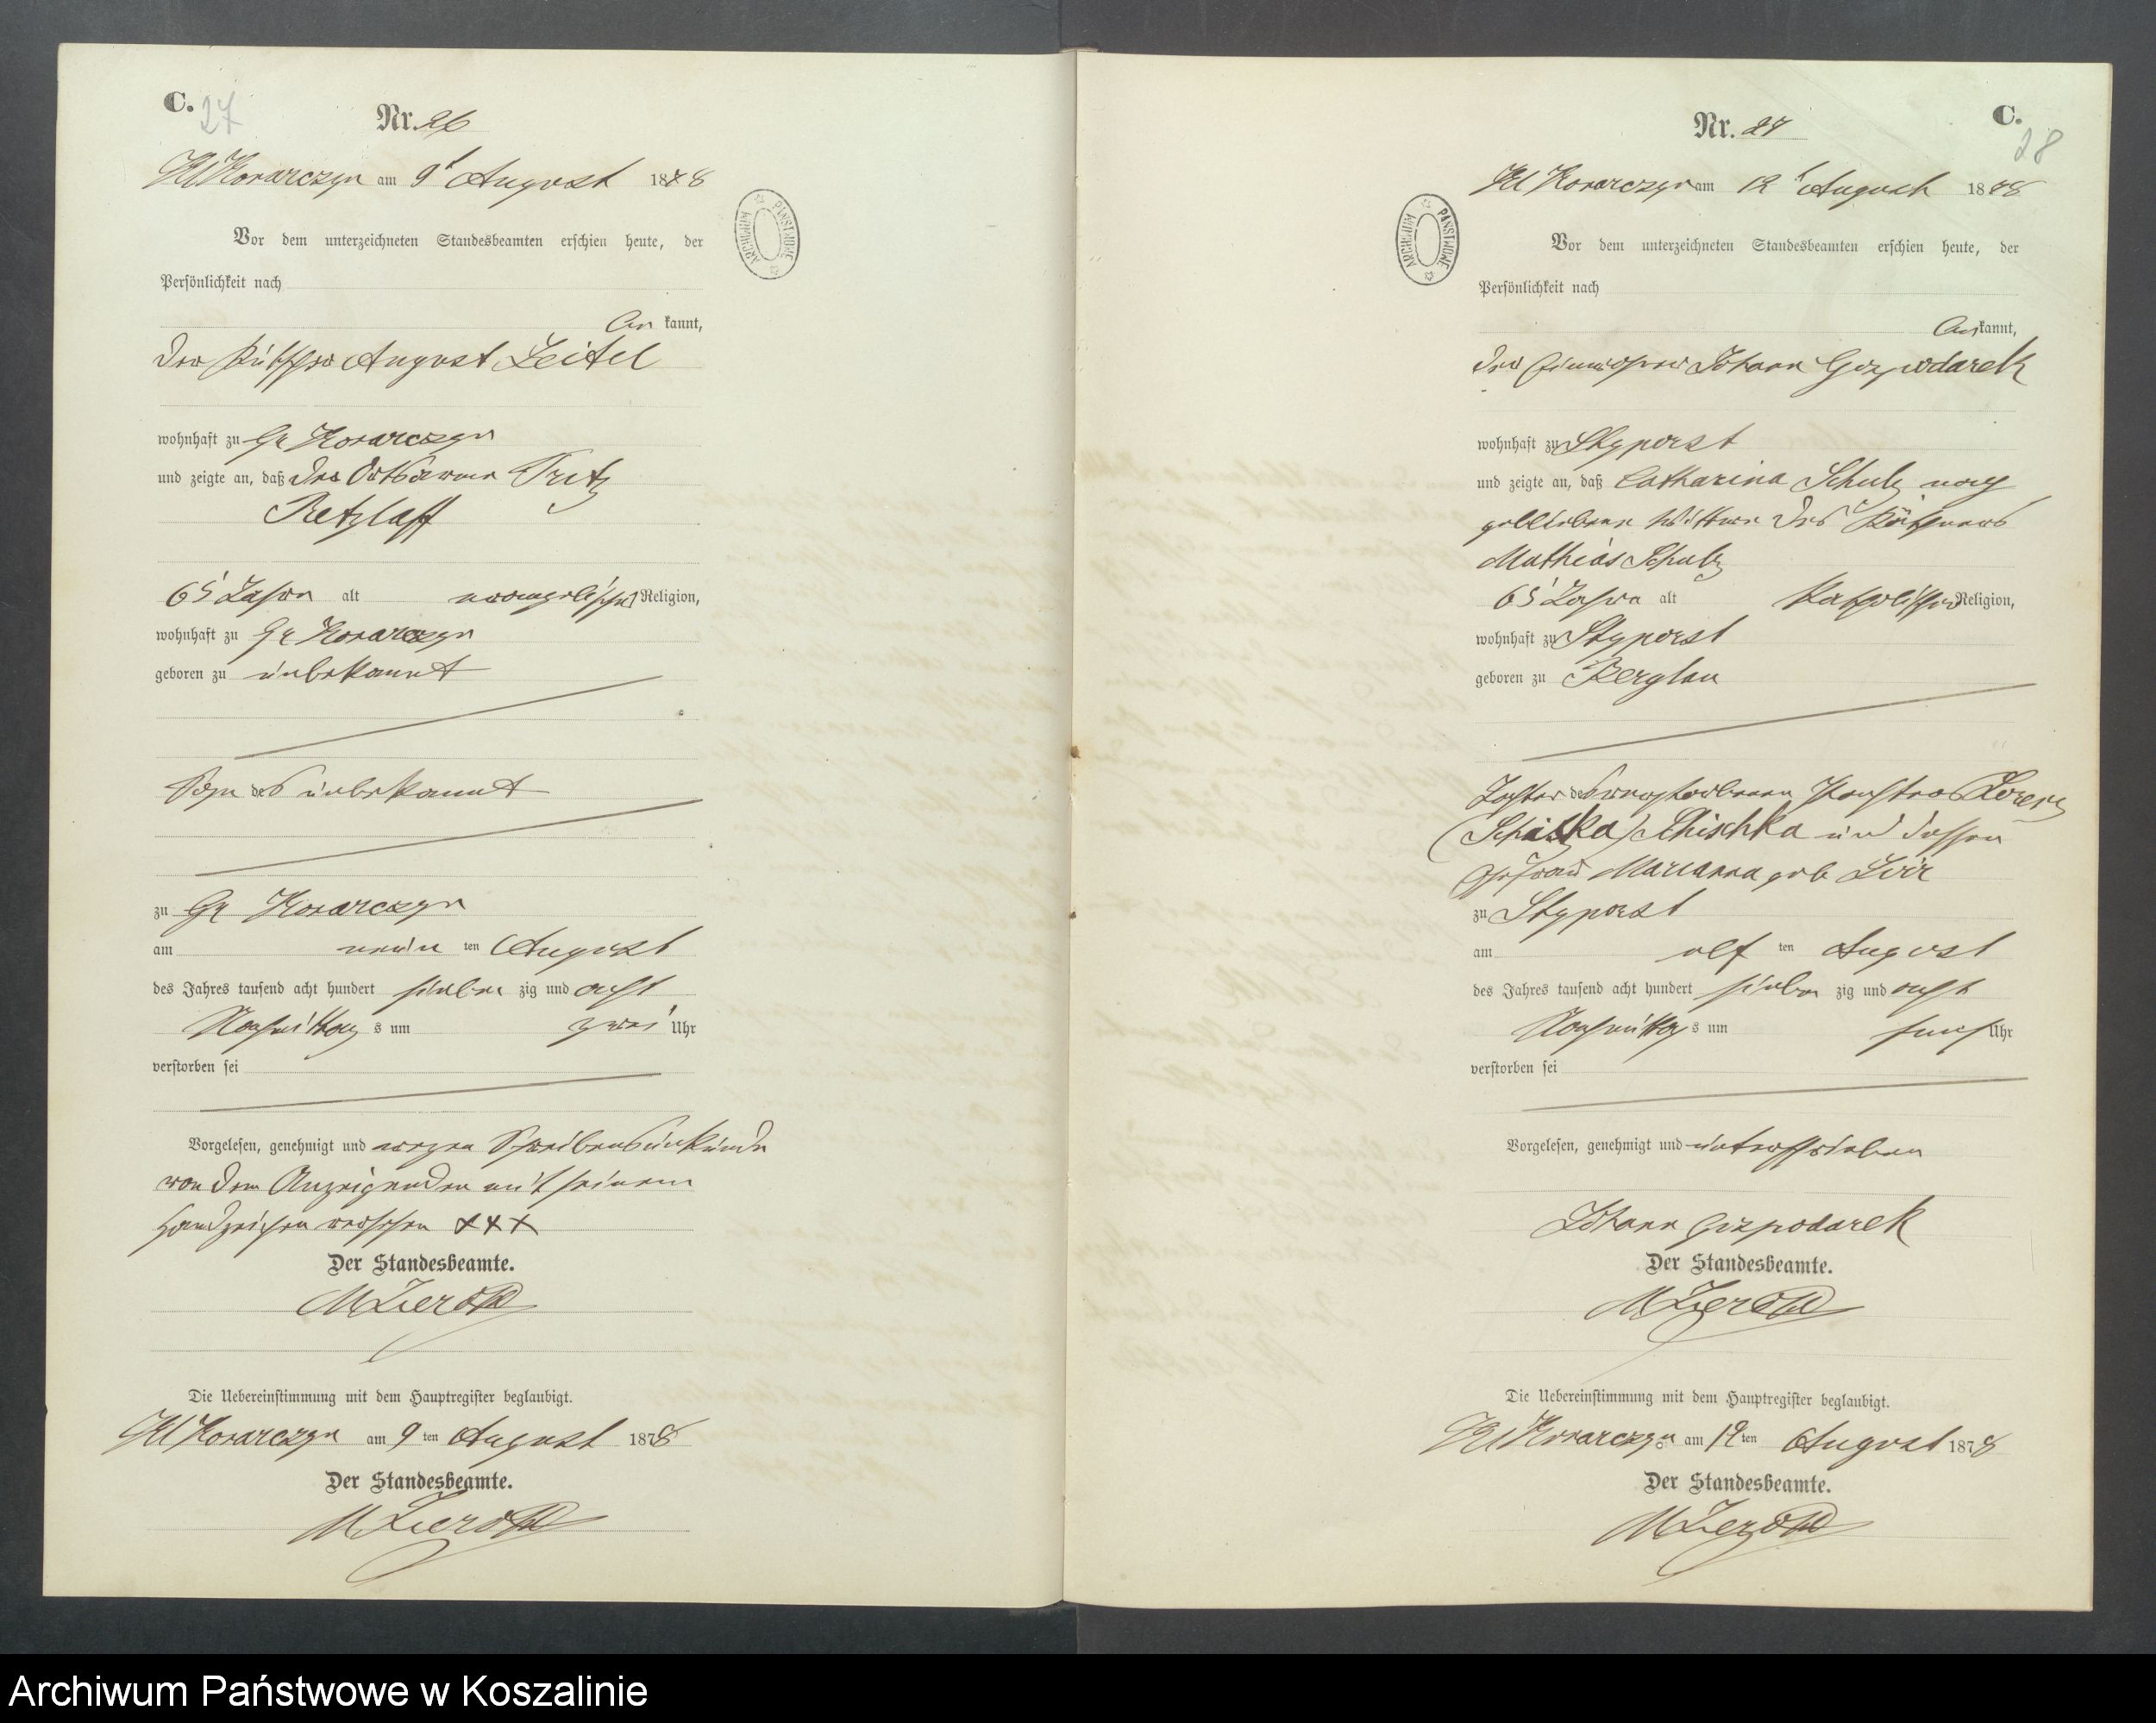 C. 27
Nr. 26
Kl Konarczyn am 9t August 1878
Vor dem unterzeichneten Standesbeamten erschien heute, der
Persönlichkeit nach
kannt,
der August Zeitel
wohnhaft zu Gr Konarczyn
und zeigte an, daß der Ortsarme Fritz
Retzlaff
65 Jahre alt evangelischer Religion,
wohnhaft zu Gr Konarczyn
geboren zu unbekannt
Sohn des unbekannt
zu Gr Konarczyn
am neun ten August
des Jahres tausend acht hundert sieben zig und acht
Nachmittag s um zwei Uhr
verstorben sei
Vorgelesen, genehmigt und wegen Schreibensunkunde
von dem Anzeigenden mit seinem
Handzeichen versehen XXX
Der Standesbeamte.
Die Uebereinstimmung mit dem Hauptregister beglaubigt.
Kl Konarczyn am 9 ten August 1878
Der Standesbeamte.
ARCHIWUM PAŃSTWOWE
C.
28
Nr. 27
Kl Konarczyn am 12t August 1878
Vor dem unterzeichneten Standesbeamten erschien heute, der
Persönlichkeit nach
kannt,
der Einwohner Johann Gospodarek
wohnhaft zu Styporst
und zeigte an, daß Catharina Schulz nach
gebliebene Wittwe des Käthners
Mathias Schulz
65 Jahre alt katholischer Religion,
wohnhaft zu Styporst
geboren zu
Tochter des verstorbenen Lorenz
Schischka und dessen
Ehefrau Marianna geb
zu Styporst
am elf ten August
des Jahres tausend acht hundert sieben zig und acht
Nachmittag s um fünf Uhr
verstorben sei
Vorgelesen, genehmigt und unterschrieben
Johann Gospodarek
Der Standesbeamte.
Die Uebereinstimmung mit dem Hauptregister beglaubigt.
Kl Konarczyn am 12 ten August 1878
Der Standesbeamte.
ARCHIWUM PAŃSTWOWE
Archiwum Państwowe w Koszalinie